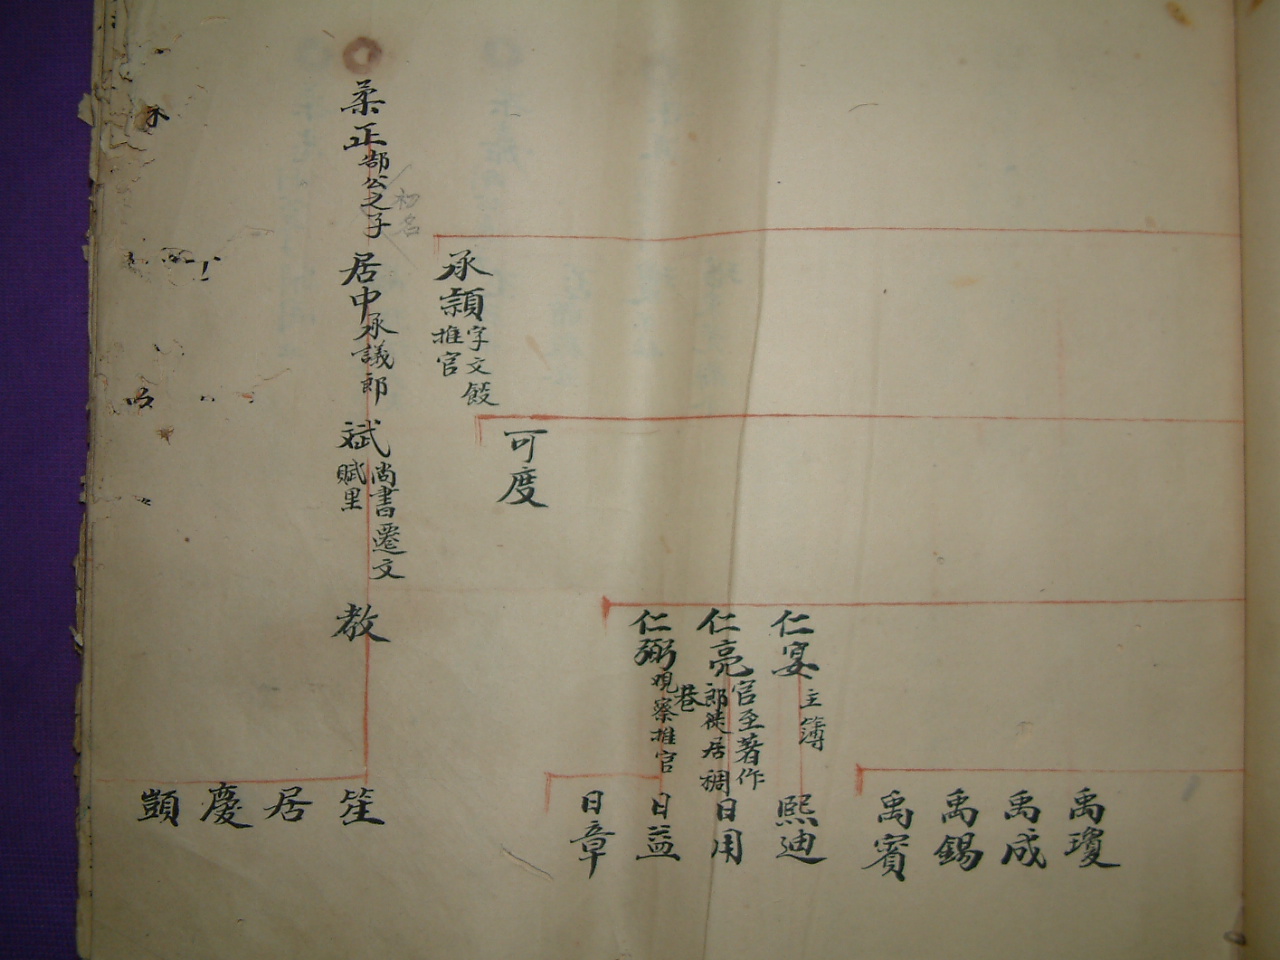 禹瓊
禹成
禹錫
禹賓
仁宴主簿
熙迪
仁亮官至著作
郎徙居稠
巷
日用
仁弼觀察推官
日益
日章
可度
承頴字文餀
推官
初名
柔正郜公之子
居中承議郎
斌尚書遷文
賦里
教
笙
居
慶
顗